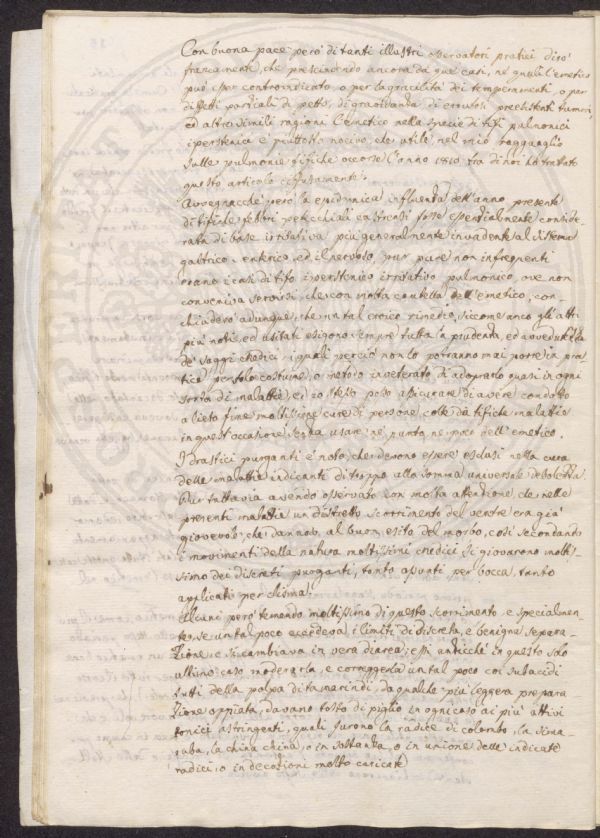 Con buona pace però di tanti illustri osservatori pratici dirò
francamente, che prescindendo ancora da que' casi, ne' quali l'emetico
può esser controindicato, o per la gracilità de' temperamenti, o per
difetti parziali di petto, di gravidanza di preesistenti tumori,
ed altre simili ragioni l'emetico nella specie di tifi pulmonici
iperstenici è piuttosto nocivo, che utile, nel mio ragguaglio
sulle pulmonie tifiche occorse l'anno 1810 tra di noi ho trattato
questo articolo diffusamente.
Avvegnacchè però la epidemica influenza dell'anno presente
di tifiche febbri petecchiali esistenti fosse essenzialmente conside-
rata di base irritativa più generalmente invadente al sistema
gastrico-enterico, ed il nervoso, pur pure non infrequenti
erano i casi di tifo iperstenico irritativo pulmonico, ove non
conveniva servirsi, che con molta cautela dell'emetico, con-
chiuderò adunque, che un tal eroico rimedio, siccome anco gli altri
più noti, ed usitati esigono sempre tutta la prudenza, ed avvedutezza
de' saggi medici, i quali perciò non lo potranno mai porre in pra-
tica per solo costume, o metodo inveterato di adoprarlo quasi in ogni
sorta di malattie, ed io stesso posso assicurare di avere condotto
a lieto fine moltissime cure di persone, colte da tifiche malattie
in quest'occasione senza usare nè punto, nè poco dell'emetico.
I drastici purganti è noto, che devono essere esclusi nella cura
delle malattie indicanti di troppo alla somma universale debolezza.
Pur tuttavia avendo osservato con molta attenzione, che nelle
presenti malattie un discreto scorrimento del ventre era più
giovevole, che dannoso al buon esito del morbo, così secondando
i movimenti della natura moltissimi medici si giovarono moltis-
simo dei discreti purganti, tanto assunti per bocca, tanto
applicati per clisma.
Alcuni però temendo moltissimo di questo scorrimento, e specialmen-
te, se un tal poco eccedeva i limiti di discreta, e benigna separa-
zione, e si cambiava in vera diarea, essi anzicchè in questo solo
ultimo caso moderarla, e correggerla un tal poco coi subacidi
frutti della polpa di tamarindi, da qualche più leggera prepara-
zione oppiata, davano tosto di piglio in ogni caso ai più attivi
tonici astringenti, quali furono la radice di colombo, la sima-
ruba, la china china, o in sostanza, o in unione delle indicate
radici, o in decozioni molto caricate